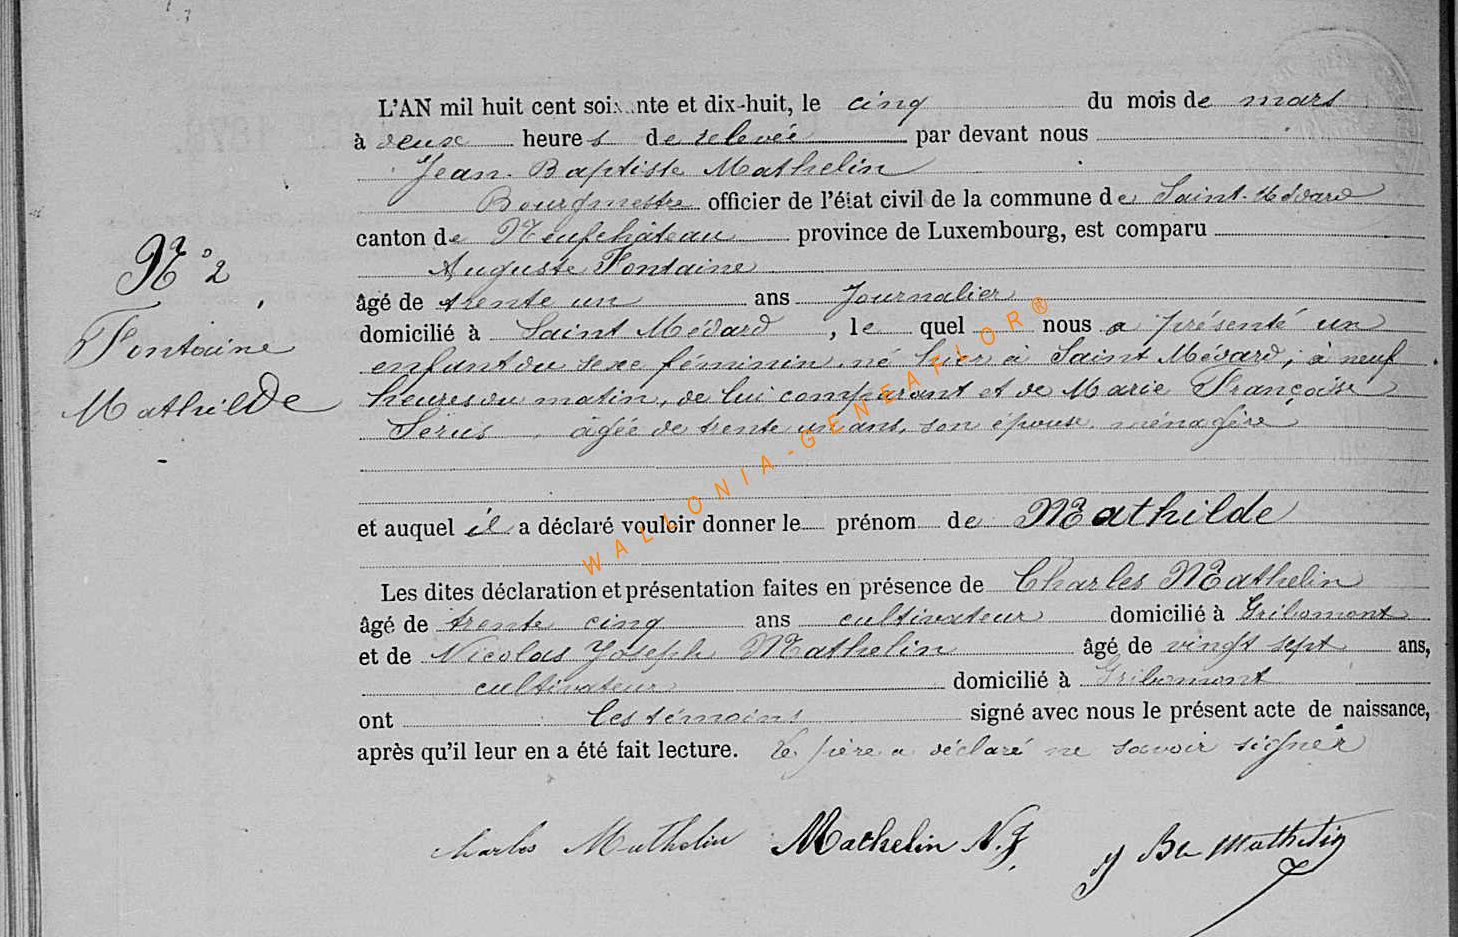 L'AN mil huit cent soixante et dix-huit, le cinq du mois de mars
à deux heures de relevée par devant nous
Jean-Baptiste Mathelin
Bourgmestre officier de l'état civil de la commune de Saint-Médard
canton de Neufchâteau province de Luxembourg, est comparu
Auguste Fontaine
âgé de trente un ans Journalier
domicilié à Saint Médard, le quel nous a présenté un
enfant du sexe féminin, né hier à Saint Médard, à neuf
heures du matin, de lui comparant et de Marie Françoise
âgée de trente un ans, son épouse, ménagère
et auquel il a déclaré vouloir donner le prénom de Mathilde
Les dites déclaration et présentation faites en présence de Charles Mathelin
âgé de trente cinq ans cultivateur domicilié à Gribomont
et de Nicolas Joseph Mathelin âgé de vingt sept ans,
cultivateur domicilié à Gribomont
ont les témoins signé avec nous le présent acte de naissance,
après qu'il leur en a été fait lecture. Le père a déclaré ne savoir signer
Charles Mathelin Mathelin N.J. J Bte Mathelin
N° 2
Fontaine
Mathilde
WALLONIA-GENEAFLOR®